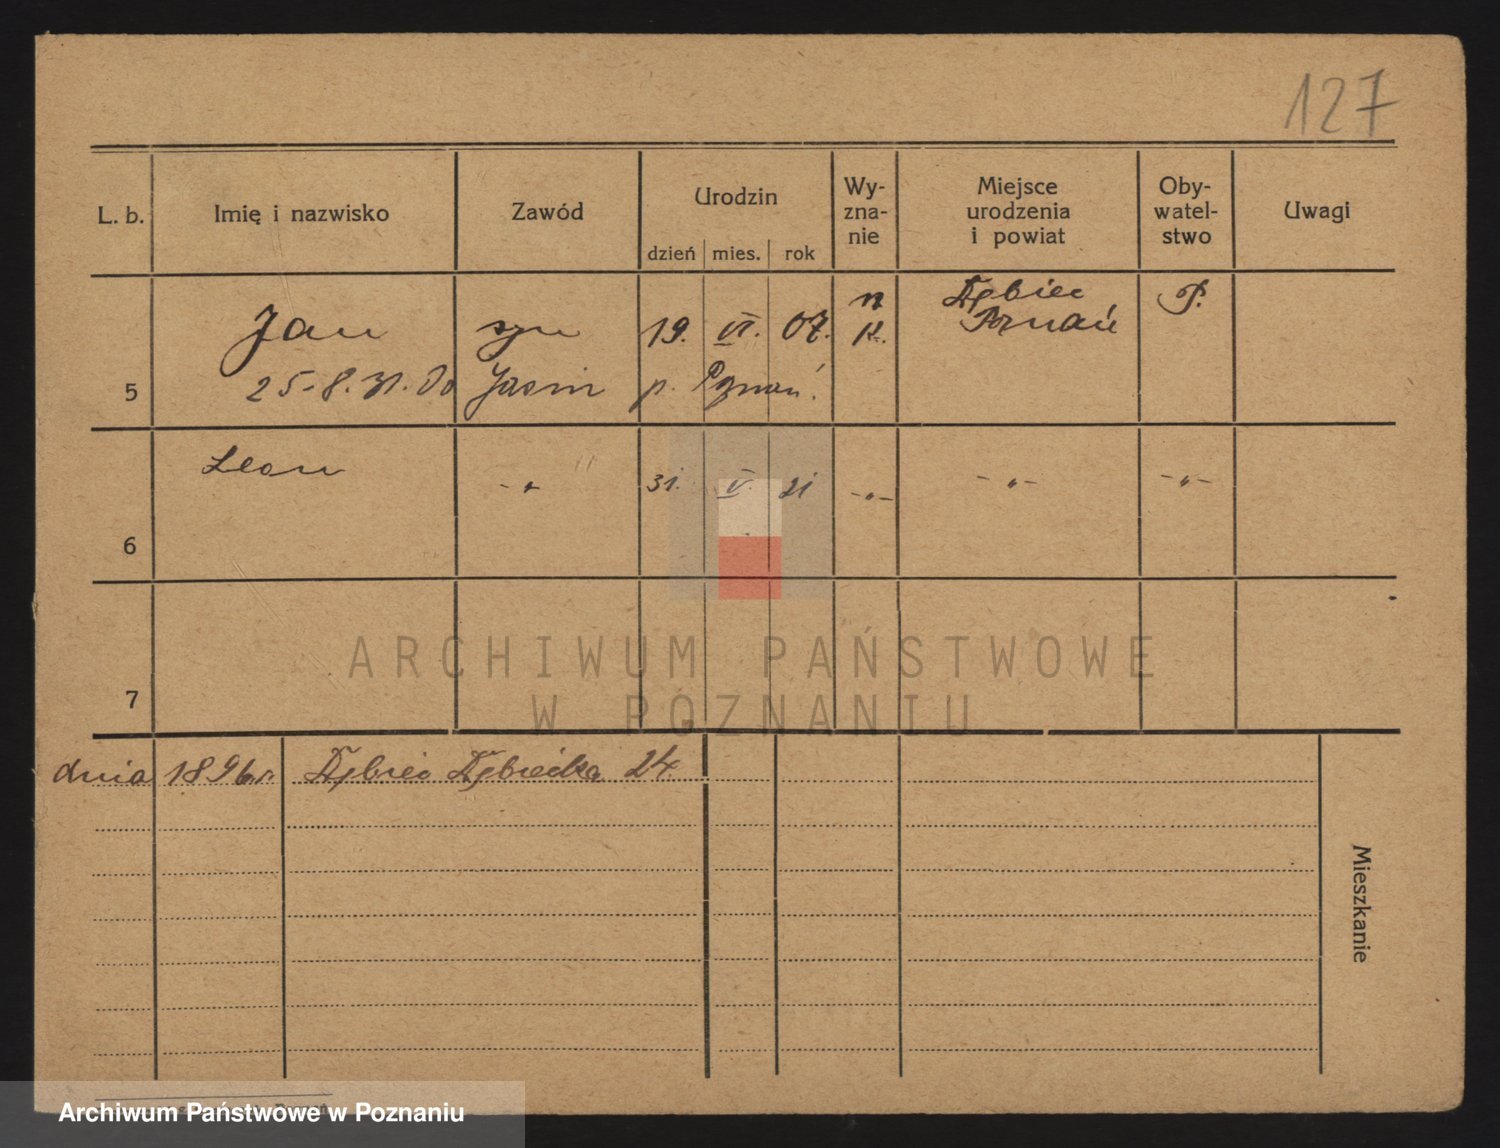 127
L. b. Imię i nazwisko Zawód Urodzin Wy- zna- nie Miejsce urodzenia i powiat Oby- watel- stwo Uwagi
dzień mies. rok
Jan syn 19. VI. 07. r. k. Dębiec Poznań P.
5 25-8.31. Do Jasin p. Poznań.
Leon -"- 31. V. 21 -"- -"- -"-
6
7
ARCHIWUM PAŃSTWOWE
W POZNANIU
dnia 1896 r. Dębiec Dębiecka 24.
Mieszkanie
Archiwum Państwowe w Poznaniu